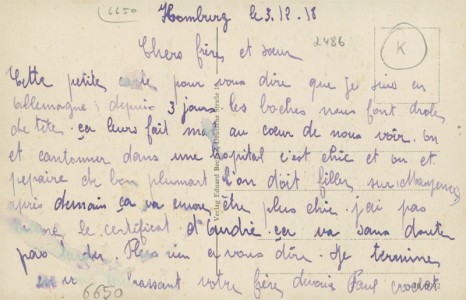 6650
Homburg le 3.12.18
2486
K
Chers frère et sœur
Cette petite carte pour vous dire que je suis en
allemagne depuis 3 jours les boches nous font drole
de tête. ça leurs fait mal au coeur de nous voir. on
et cantonner dans une hopital c'est chic et on et
de bon plumart l'on doit filler sur Mayence
après demain ça va encore être plus chic. j'ai pas
le certificat d'André. ça va sans doute
pas tarder. Plus rien a vous dire. Je termine
en vous votre frère Paul
6650
Verlag Eduard